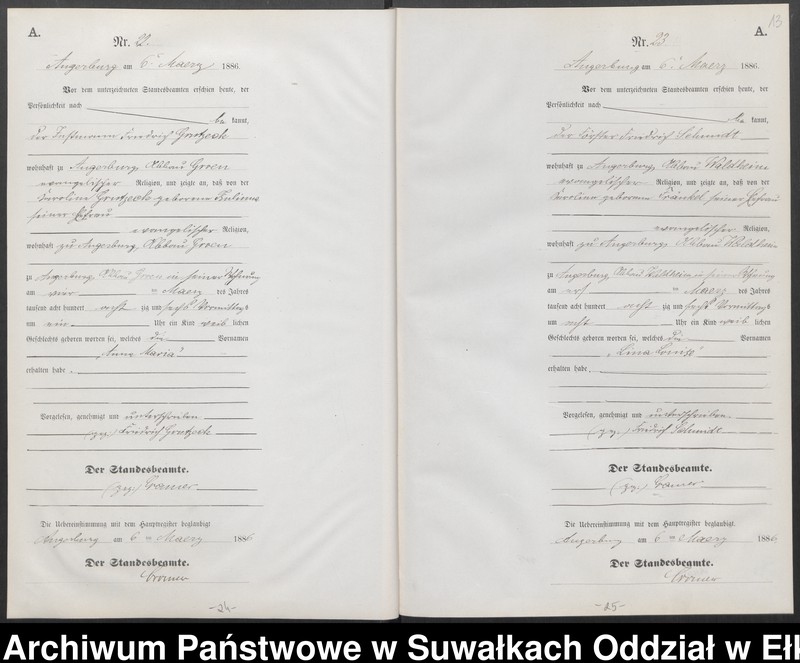 A.
Nr. 21.
Angerburg am 6ten Maerz 1886.
Vor dem unterzeichneten Standesbeamten erschien heute, der
Persönlichkeit nach
be kannt,
der Instmann Friedrich
wohnhaft zu Angerburg, Abbau Groen
evangelischer Religion, und zeigte an, daß von der
Caroline geborene
seiner Ehefrau
evangelischer Religion,
wohnhaft zu Angerburg, Abbau Groen
zu Angerburg, Abbau Groen in seiner Wohnung
am vier ten Maerz des Jahres
tausend acht hundert acht zig und sechs Vormittags
um Uhr ein Kind weib lichen
Geschlechts geboren worden sei, welches die Vornamen
„Anna Maria“
erhalten habe.
Vorgelesen, genehmigt und unterschrieben
(gez.) Friedrich
Der Standesbeamte.
(gez.) Cramer
Die Uebereinstimmung mit dem Hauptregister beglaubigt
Angerburg am 6 ten Maerz 1886
Der Standesbeamte.
Cramer
-24-
13
A.
Nr. 23.
Angerburg am 6ten Maerz 1886.
Vor dem unterzeichneten Standesbeamten erschien heute, der
Persönlichkeit nach
be kannt,
der Förster Friedrich Schmidt
wohnhaft zu Angerburg, Abbau Waldheim
evangelischer Religion, und zeigte an, daß von der
Caroline geborene Fränkel seiner Ehefrau
evangelischer Religion,
wohnhaft zu Angerburg, Abbau Waldheim
zu Angerburg, Abbau Waldheim in seiner Wohnung
am ten Maerz des Jahres
tausend acht hundert acht zig und sechs Vormittags
um acht Uhr ein Kind weib lichen
Geschlechts geboren worden sei, welches die Vornamen
„Lina Louise“
erhalten habe.
Vorgelesen, genehmigt und unterschrieben
(gez.) Friedrich Schmidt
Der Standesbeamte.
(gez.) Cramer
Die Uebereinstimmung mit dem Hauptregister beglaubigt
Angerburg am 6 ten Maerz 1886
Der Standesbeamte.
Cramer
-25-
Archiwum Państwowe w Suwałkach Oddział w Ełk